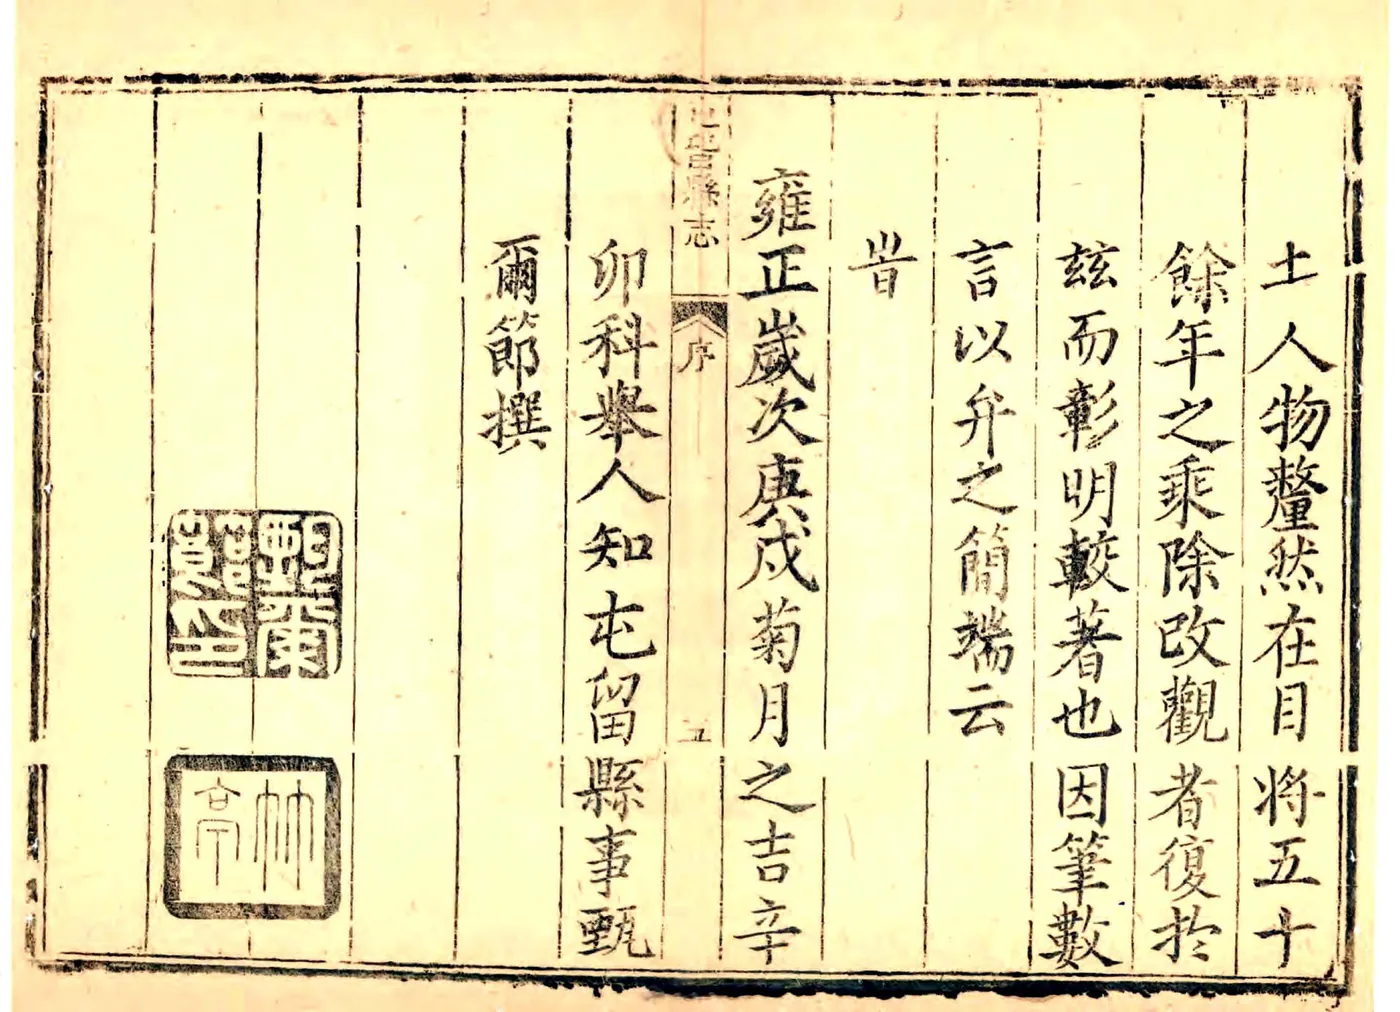 土人物釐然在目將五十
餘年之乘除改觀者復於
玆而彰明較著也因筆數
言以弁之簡端云
旹
雍正歲次庚戌菊月之吉辛
屯留縣志
序
五
卯科舉人知屯留縣事甄
爾節撰
甄爾節印
竹亭